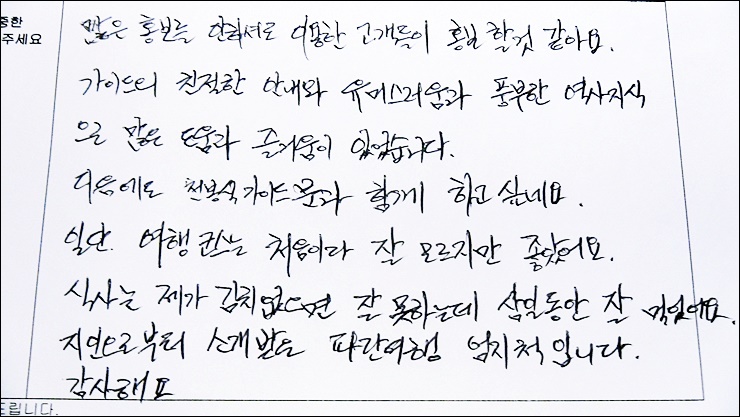 중한
주세요
많은 홍보를 안하셔도 이용한 고객들이 홍보 할것 같아요.
가이드의 친절한 안내와 유머스러움과 풍부한 역사지식
으로 많은 도움과 즐거움이 있었습니다.
다음에도 천봉욱가이드분과 함께 하고 싶네요.
일단. 여행 코스는 처음이라 잘 모르지만 좋았어요.
식사는 제가 김치없으면 잘 못하는데 삼일동안 잘 먹었어요.
지인으로부터 소개받은 파란여행 엄지척입니다.
감사해요
드립니다.